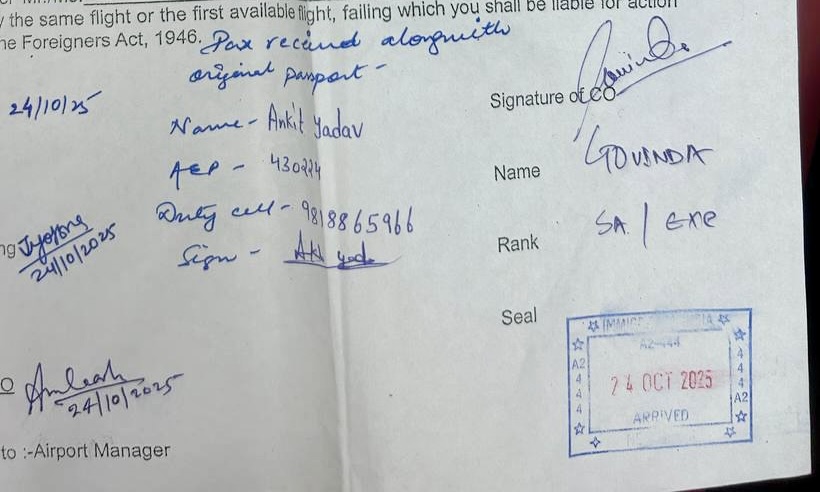 the same flight or the first available flight, failing which you shall be liable for action
ne Foreigners Act, 1946.
Pax received alongwith
original passport -
24/10/25
Name - Ankit Yadav
AEP - 430224
Duty cell - 9818865966
Sign -
Signature of CO
Name GOVINDA
Rank SA / Exe
ng
24/10/2025
Seal
A2-444
A2 4 4 4
24 OCT 2025
ARRIVED
4 4 4 A2
O
24/10/2025
to :-Airport Manager